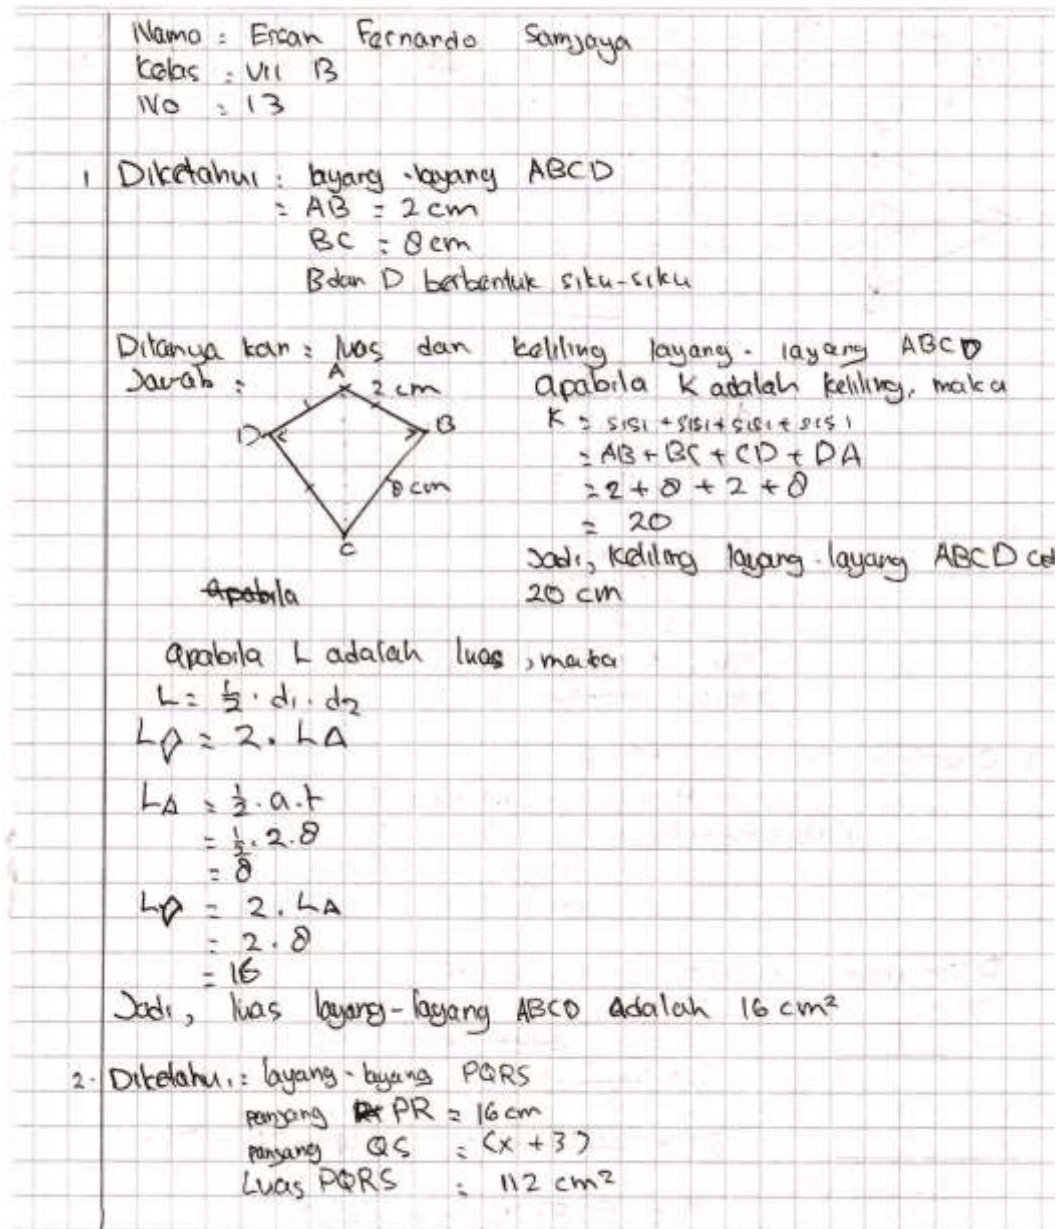 Nama : Ersan Fernardo Samjaya
Kelas : VII B
No : 13
1 Diketahui : layang-layang ABCD
= AB = 2 cm
BC = 8 cm
B dan D berbentuk siku-siku
Ditanya kan : luas dan keliling layang-layang ABCD
Jawab :
A
2 cm
D
B
8 cm
C
apabila K adalah keliling, maka
K = sisi + sisi + sisi + sisi
= AB + BC + CD + DA
= 2 + 8 + 2 + 8
= 20
Jadi, keliling layang-layang ABCD
20 cm
Apabila
apabila L adalah luas, maka
L = 1/2 . d1 . d2
L◊ = 2 . L∆
L∆ = 1/2 . a . t
= 1/2 . 2 . 8
= 8
L◊ = 2 . L∆
= 2 . 8
= 16
Jadi, luas layang-layang ABCD adalah 16 cm²
2. Diketahui : layang-layang PQRS
panjang PR = 16 cm
panjang QS = (x + 3)
Luas PQRS = 112 cm²